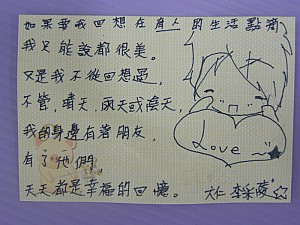 如果要我回想在育人的生活點滴
我只能說都很美。
又是我不從回想過，
不管，晴天，雨天或陰天，
我的身邊有著朋友，
有了他們，
天天都是幸福的回憶。
Love～
大仁 李采陵